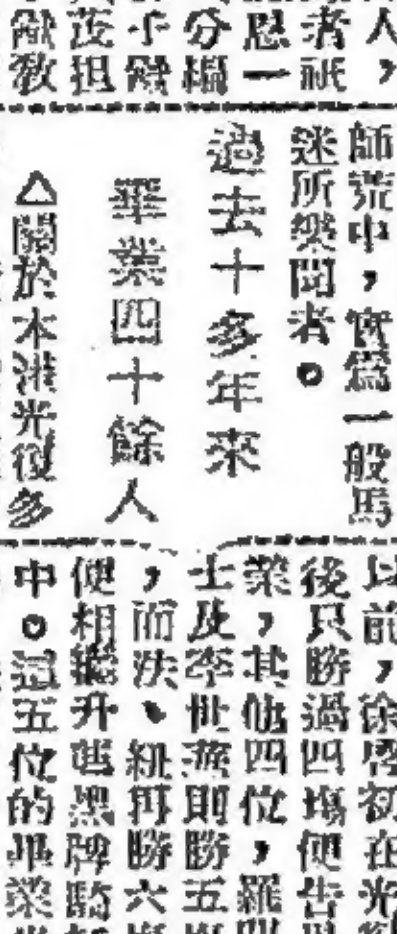 人，
者祇
思一
分編
小
茂担
教
師荒中，實為一般馬
迷所樂聞者。
過去十多年來
畢業四十餘人
△關於本港光復多
以前，徐啓初在光
後只勝過四塲便告畢
業，其他四位，羅
士及李世燕則勝五
，而洪、紐再勝六
便相繼升進黑牌騎
中。這五位的畢業